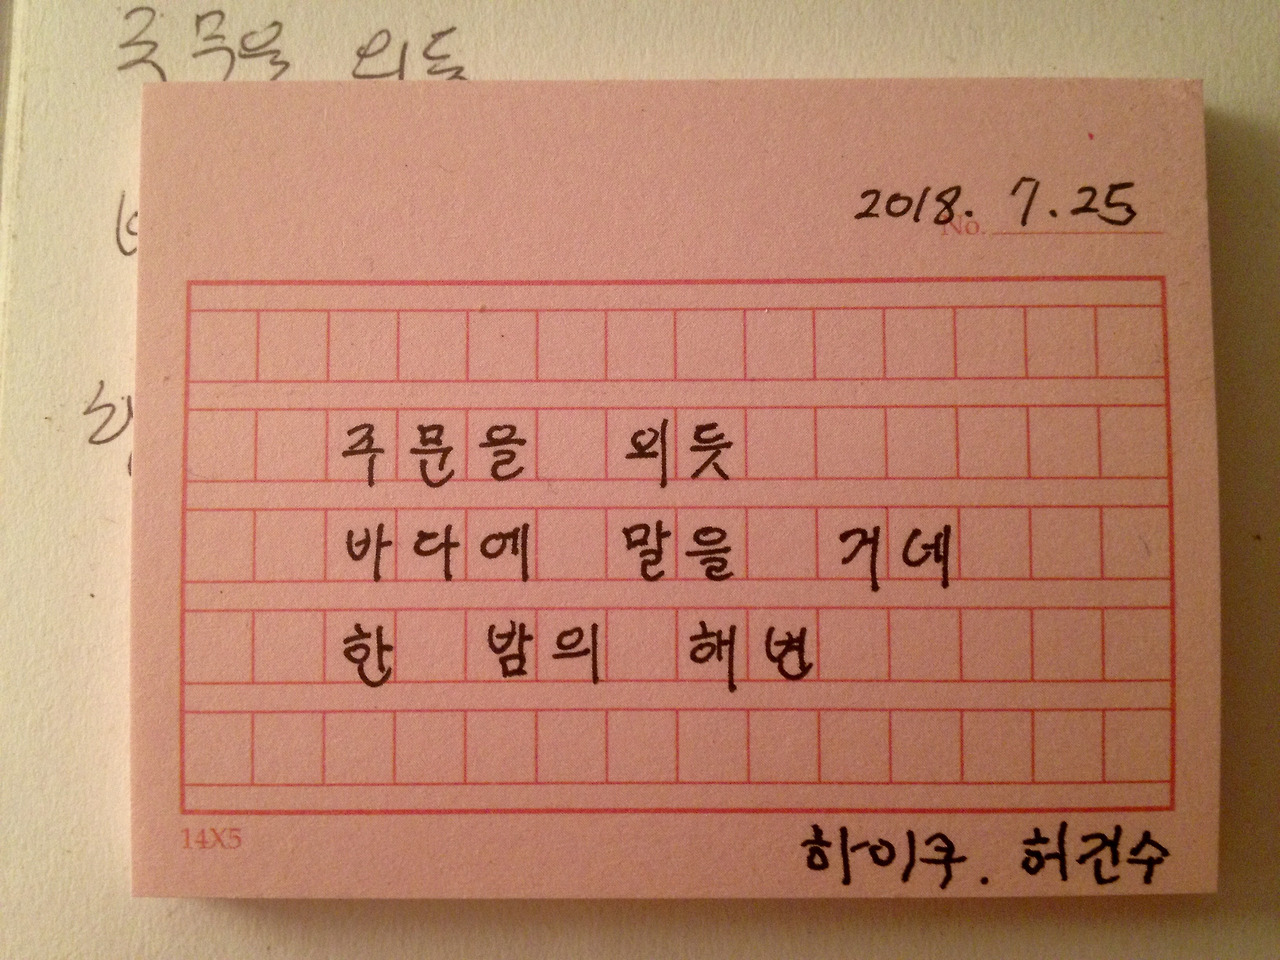 주문을 외듯
2018. 7. 25
No.
주문을 외듯
바다에 말을 거네
한 밤의 해변
14X5
하이쿠. 허건수